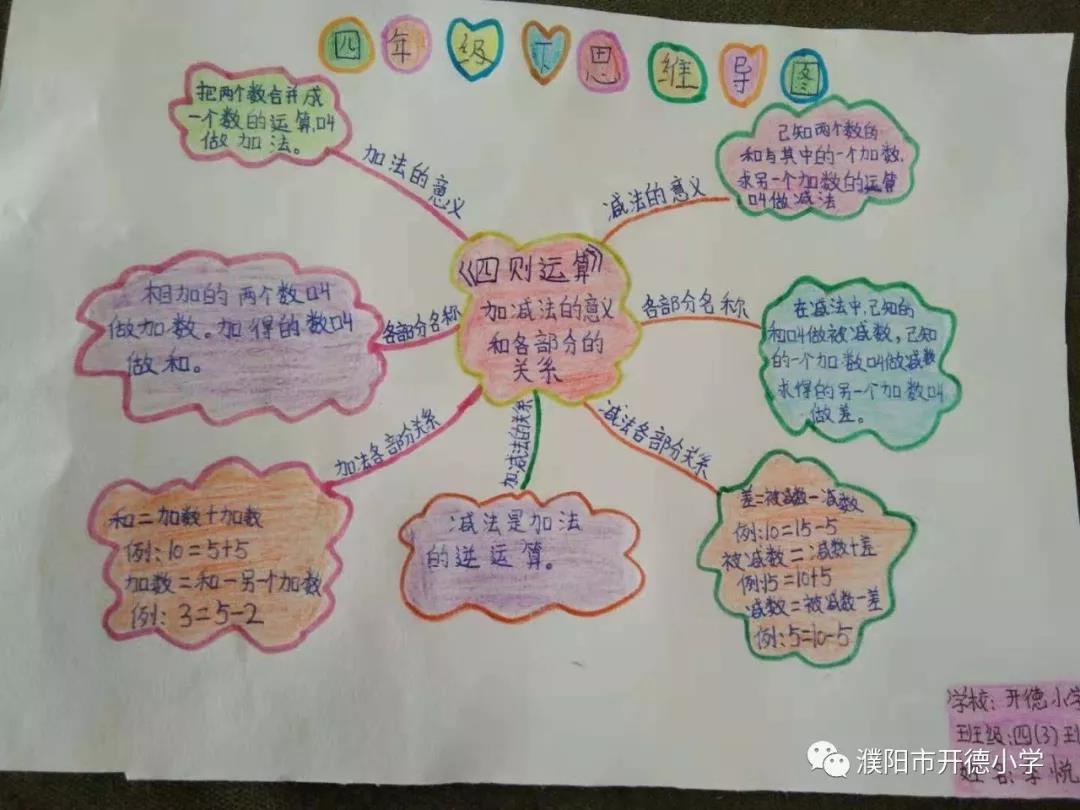 四年级下思维导图
把两个数合并成
一个数的运算,叫
做加法。
加法的意义
已知两个数的
和与其中的一个加数,
求另一个加数的运算
叫做减法
减法的意义
《四则运算》
加减法的意义
和各部分的
关系
相加的两个数叫
做加数。加得的数叫
做和。
各部分名称
各部分名称
在减法中,已知的
和叫做被减数,已知
的一个加数叫做减数
求得的另一个加数叫
做差。
加法各部分关系
加减法的关系
减法各部分关系
和=加数+加数
例:10=5+5
加数=和-另一个加数
例:3=5-2
减法是加法
的逆运算。
差=被减数-减数
例:10=15-5
被减数=减数+差
例:15=10+5
减数=被减数-差
例:5=10-5
学校:开德小学
班级:四(3)班
姓名:李悦
濮阳市开德小学